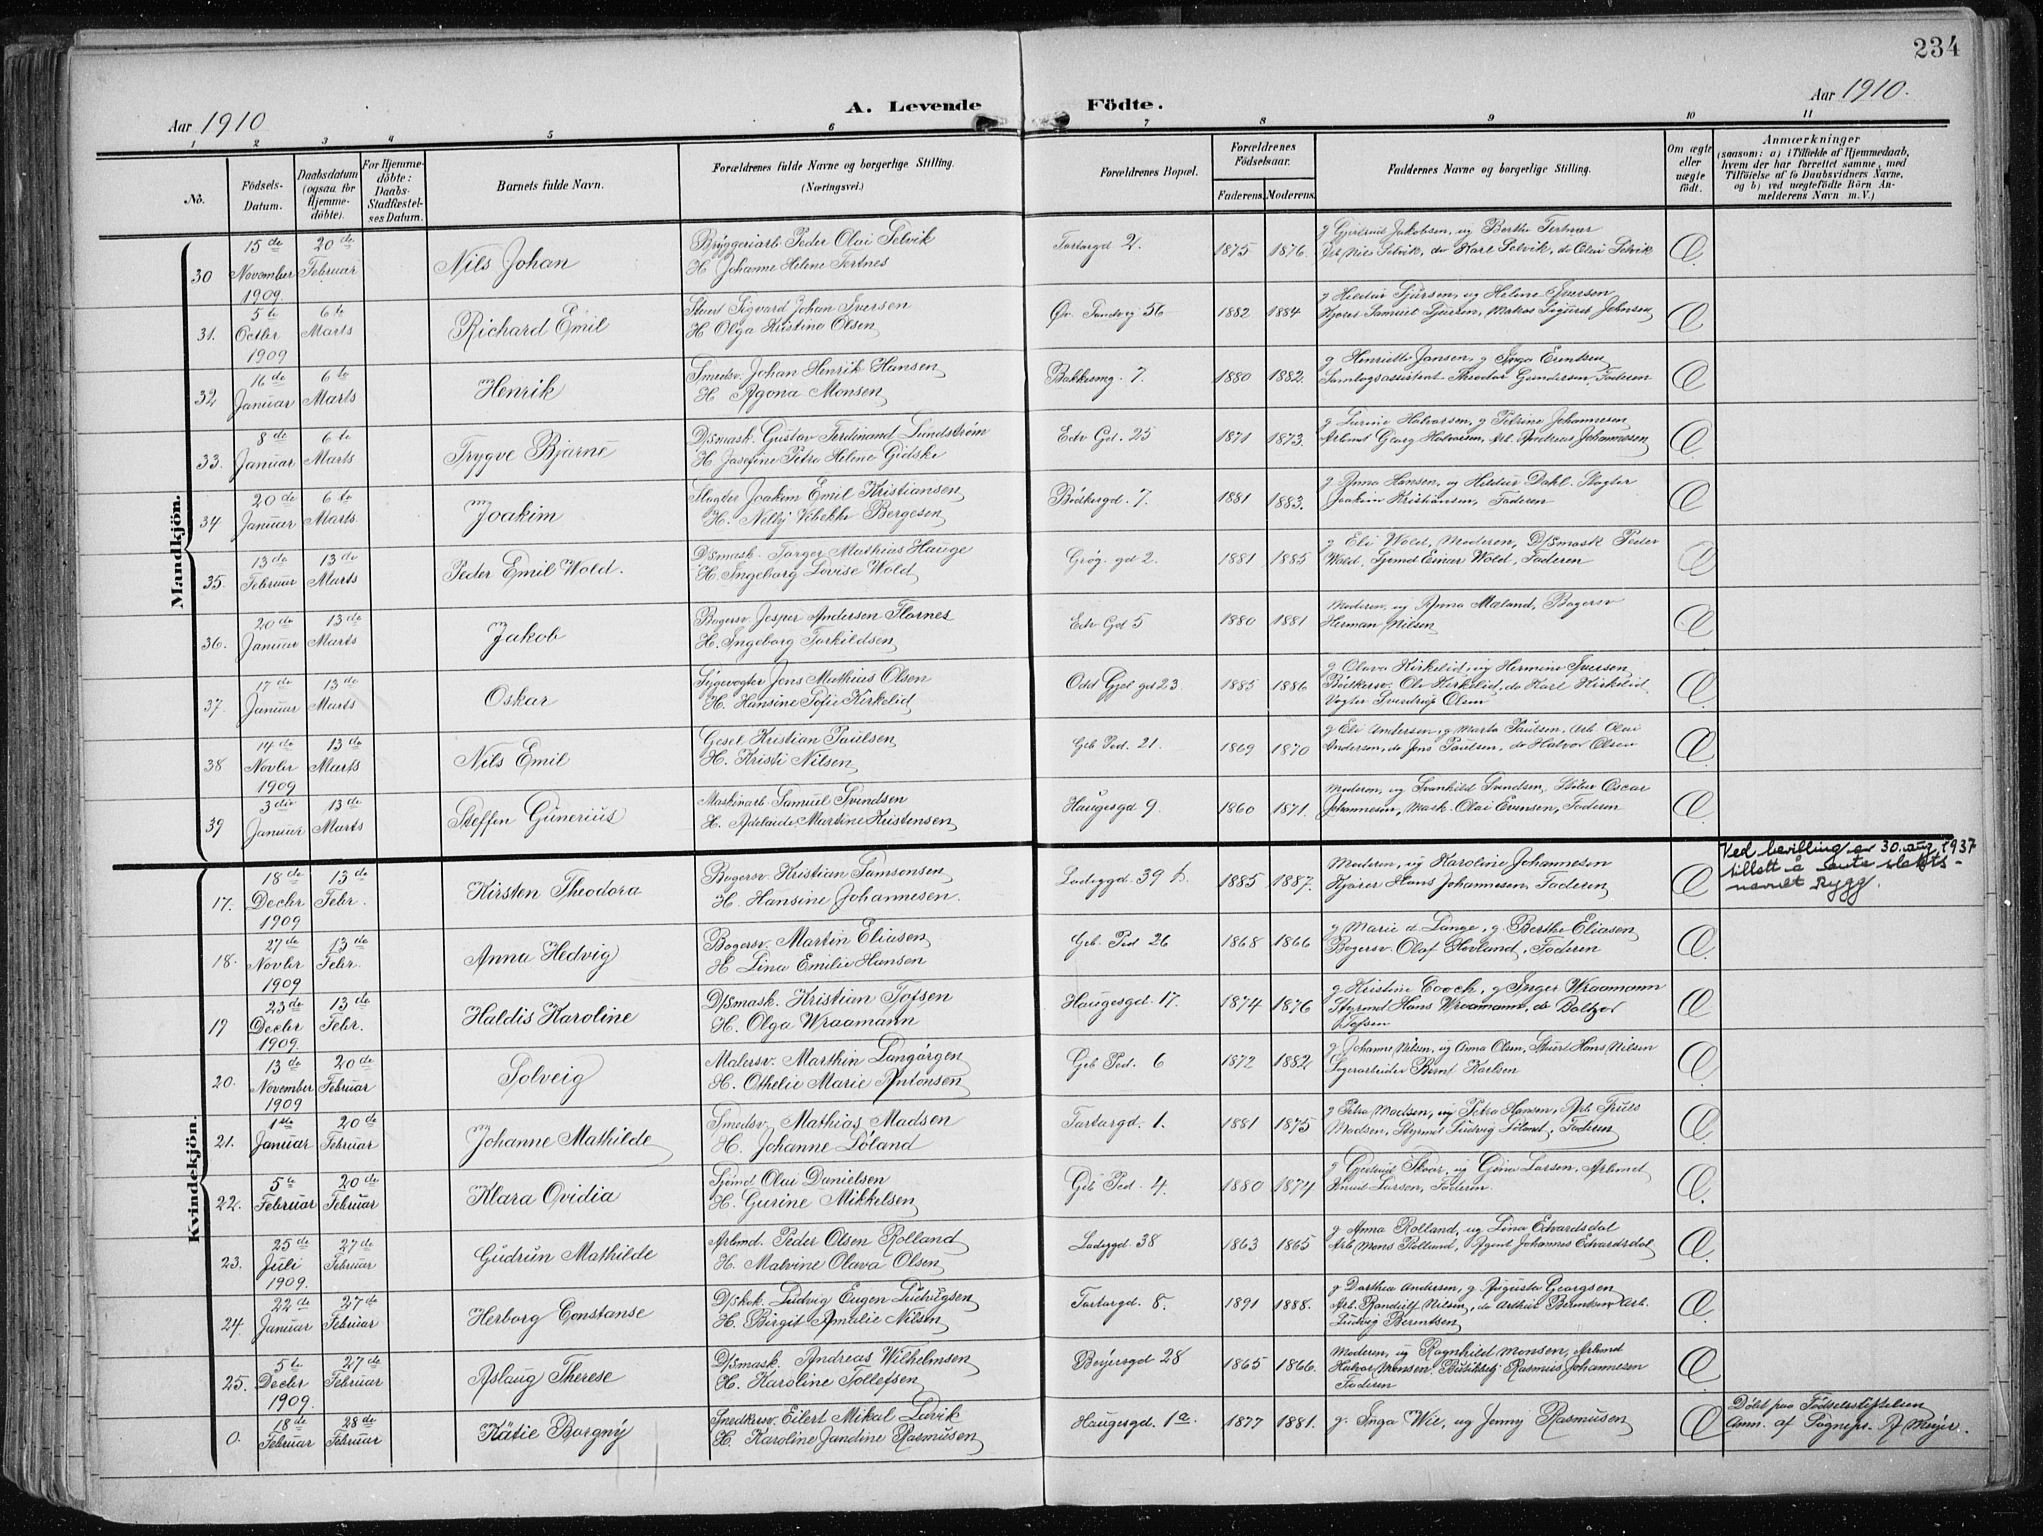 234
Aar 1910
A. Levende Födte.
Aar 1910.
1 2 3 4 5 6 7 8 9 10 11
No.
Födsels-Datum.
Daabsdatum (ogsaa for Hjemme-döbte).
For Hjemme-döbte: Daabs-Stadfæstel-ses Datum.
Barnets fulde Navn.
Forældrenes fulde Navne og borgerlige Stilling. (Næringsvei.)
Forældrenes Bopæl.
Forældrenes Födselsaar.
Faderens. Moderens.
Faddernes Navne og borgerlige Stilling.
Om ægte eller uægte födt.
Anmærkninger
(saasom: a) i Tilfælde af Hjemmedaab, hvem der har forrettet samme, med Tilföielse af to Daabsvidners Navne, og b) ved uægtefödte Börn Anmelderens Navn m. V.)
Mandkjön.
30 15de November 1909. 20de Februar Nils Johan Bryggeriarb Peder Olai Selvik H. Johanne Helene Tertnes Tartargd 2. 1875 1876. Arb Nils Selvik, do Karl Selvik, do Olai Selvik Æ.
31. 5te Octbr 1909 6te Marts Richard Emil Stuert Sigvard Johan Iversen H. Olga Kristine Olsen Øv. Sandvg 56 1882 1884 Æ
32 16de Januar 6te Marts Henrik Smedsv. Johan Henrik Hansen H. Agona Monsen Bakkesmg. 7. 1880 1882. g Henriette Jansen, g Inga Erentsen Samlagsassistent Theodor Gundersen, Faderen Æ
33. 8de Januar 6te Marts Trygve Bjarne D/smask. Gustav Ferdinand Lundstrøm H. Josefine Petra Helene Gidske Edv Gd. 25 1871 1873. g Lurine Halvorsen, g Petrine Johannesen, Arbmd Georg Halvorsen, Arb. Andreas Johannessen Æ
34 20de Januar 6te Marts Joakim Slagter Joakim Emil Kristiansen H. Nelly Vibekke Bergesen Bödkergd. 7. 1881 1883. g Anna Hansen, ug Hildur Dahl. Slagter Joakim Kristiansen, Faderen Æ
35. 13de Februar 13de Marts Peder Emil Wold. D/smask. Torger Mathias Hauge H. Ingeborg Lovise Wold Grøg. gd 2. 1881 1885 g Eli Wold, Moderen, D/smask Peder Wold, Sjømd Einar Wold, Faderen Æ
36. 20de Januar 13de Marts Jakob Bogersv Jesper Andersen Flornes H. Ingeborg Torkildsen Edv Gd 5 1880 1881 Moderen, ug Anna Mæland, Bogersv Herman Nilsen Æ.
37. 17de Januar 13de Marts Oskar Sygevogter Jens Mathias Olsen H. Hansine Sofie Kirkelid Odd Gjel gd 23. 1885 1886 g Olava Kirkelid, ug Hermine Iversen, Bödkersv. Ole Kirkelid, do Karl Kirkelid, Vogter Sverdrup Olsen Æ
38 14de Novbr 1909 13de Marts Nils Emil Gesel Kristian Paulsen H. Kristi Nilsen Geb Ped. 21. 1869 1870 g Eli Andersen, g Marta Paulsen, Arb. Olai Andersen, do Jens Paulsen, do Halvor Olsen Æ
39 3die Januar 13de Marts Steffen Gunerius Maskinarb Samuel Svendsen H. Adelaide Martine Kristensen Haugesgd 9. 1860 1871. Moderen, ug Svanhild Svendsen, Oscar Johannesen, Mask. Olai Evensen, Faderen Æ
Kvindekjön.
17. 18de Decbr 1909 13de Febr. Kirsten Theodora Bogersv. Kristian Samsonsen H. Hansine Johannesen. Ladeggd 39 b. 1885 1887. Moderen, ug Karoline Johannesen Kjører Hans Johannesen, Faderen Æ. Ved bevilling av 30. aug. 1937 tillatt å anta slekts-navnet Rygg.
18. 27de Novbr 1909 13de Febr. Anna Hedvig Bogersv. Martin Eliasen H Lina Emilie Hansen Geb. Ped 26 1868 1866 g Marie d Lange, g. Berthe Eliasen Bogersv. Olaf Hovland, Faderen Æ
19 23de Decbr 1909. 13de Febr. Haldis Karoline D/smask. Kristian Tofsen H. Olga Wraamann Haugesgd. 17. 1874 1876 g Kristine Coock, g Inger Wraamann Styrmd Hans Wraamann, do Baltzer Tofsen Æ
20. 13de November 1909 20de Februar Solveig Malersv. Marthin Langörgen H. Othelie Marie Antonsen Geb Ped. 6 1872 1882 g Johanne Nilsen, ug Anna Olsen, Stuert Hans Nilsen Sagarbeider Bernt Karlsen Æ
21. 1ste Januar 20de Februar Johanne Mathilde Smedsv. Mathias Madsen H. Johanne Løland Tartargd. 1. 1881 1875 g Petra Madsen, ug Petra Hansen, Arb Truls Madsen, Styrmd Ludvig Löland, Faderen Æ.
22. 5te Februar 20de Februar Klara Ovidia Sjømd Olai Danielsen H. Gurine Mikkelsen Geb Ped. 4. 1880 1874 g Gjertrud Skaar, ug Gina Larsen, Arbmd Knud Larsen, Faderen. Æ.
23. 25de Juli 1909. 27de Februar Gudrun Mathilde Arbmd. Peder Olsen Rolland H. Malvine Olava Olsen Ladeggd. 38 1863 1865 g Anna Rolland, ug Lina Edvardsdal Arb Mons Rolland, Agent Johannes Edvardsdal Æ.
24. 22de Januar 27de Februar Herborg Constanse D/skok. Ludvig Eugen Ludvigsen H. Birgit Amalie Nilsen Tartargd. 8. 1891 1888. g Dorthea Andersen, g Augusta Georgsen Arb. Randulf Nilsen, do Arthur Berentsen Arb. Ludvig Berentsen Æ.
25. 5te Decbr 1909. 27de Februar Aslaug Therese D/smask. Andreas Wilhelmsen H. Karoline Tollefsen Beyersgd 28 1865 1866. Moderen, ug Ragnhild Monsen, Arbmd Halvor Monsen. Rasmus Johannesen Faderen Æ
0. 18de Februar 28de Februar Kätie Borgny Snedkersv. Eilert Mikal Lavik H. Karoline Jandine Rasmusen Haugesgd. 1a. 1877 1881. g. Inga Wie, ug Jenny Rasmusen Æ. Döbt paa Fødselsstiftelsen Anm. af Sognepr. Meyer.